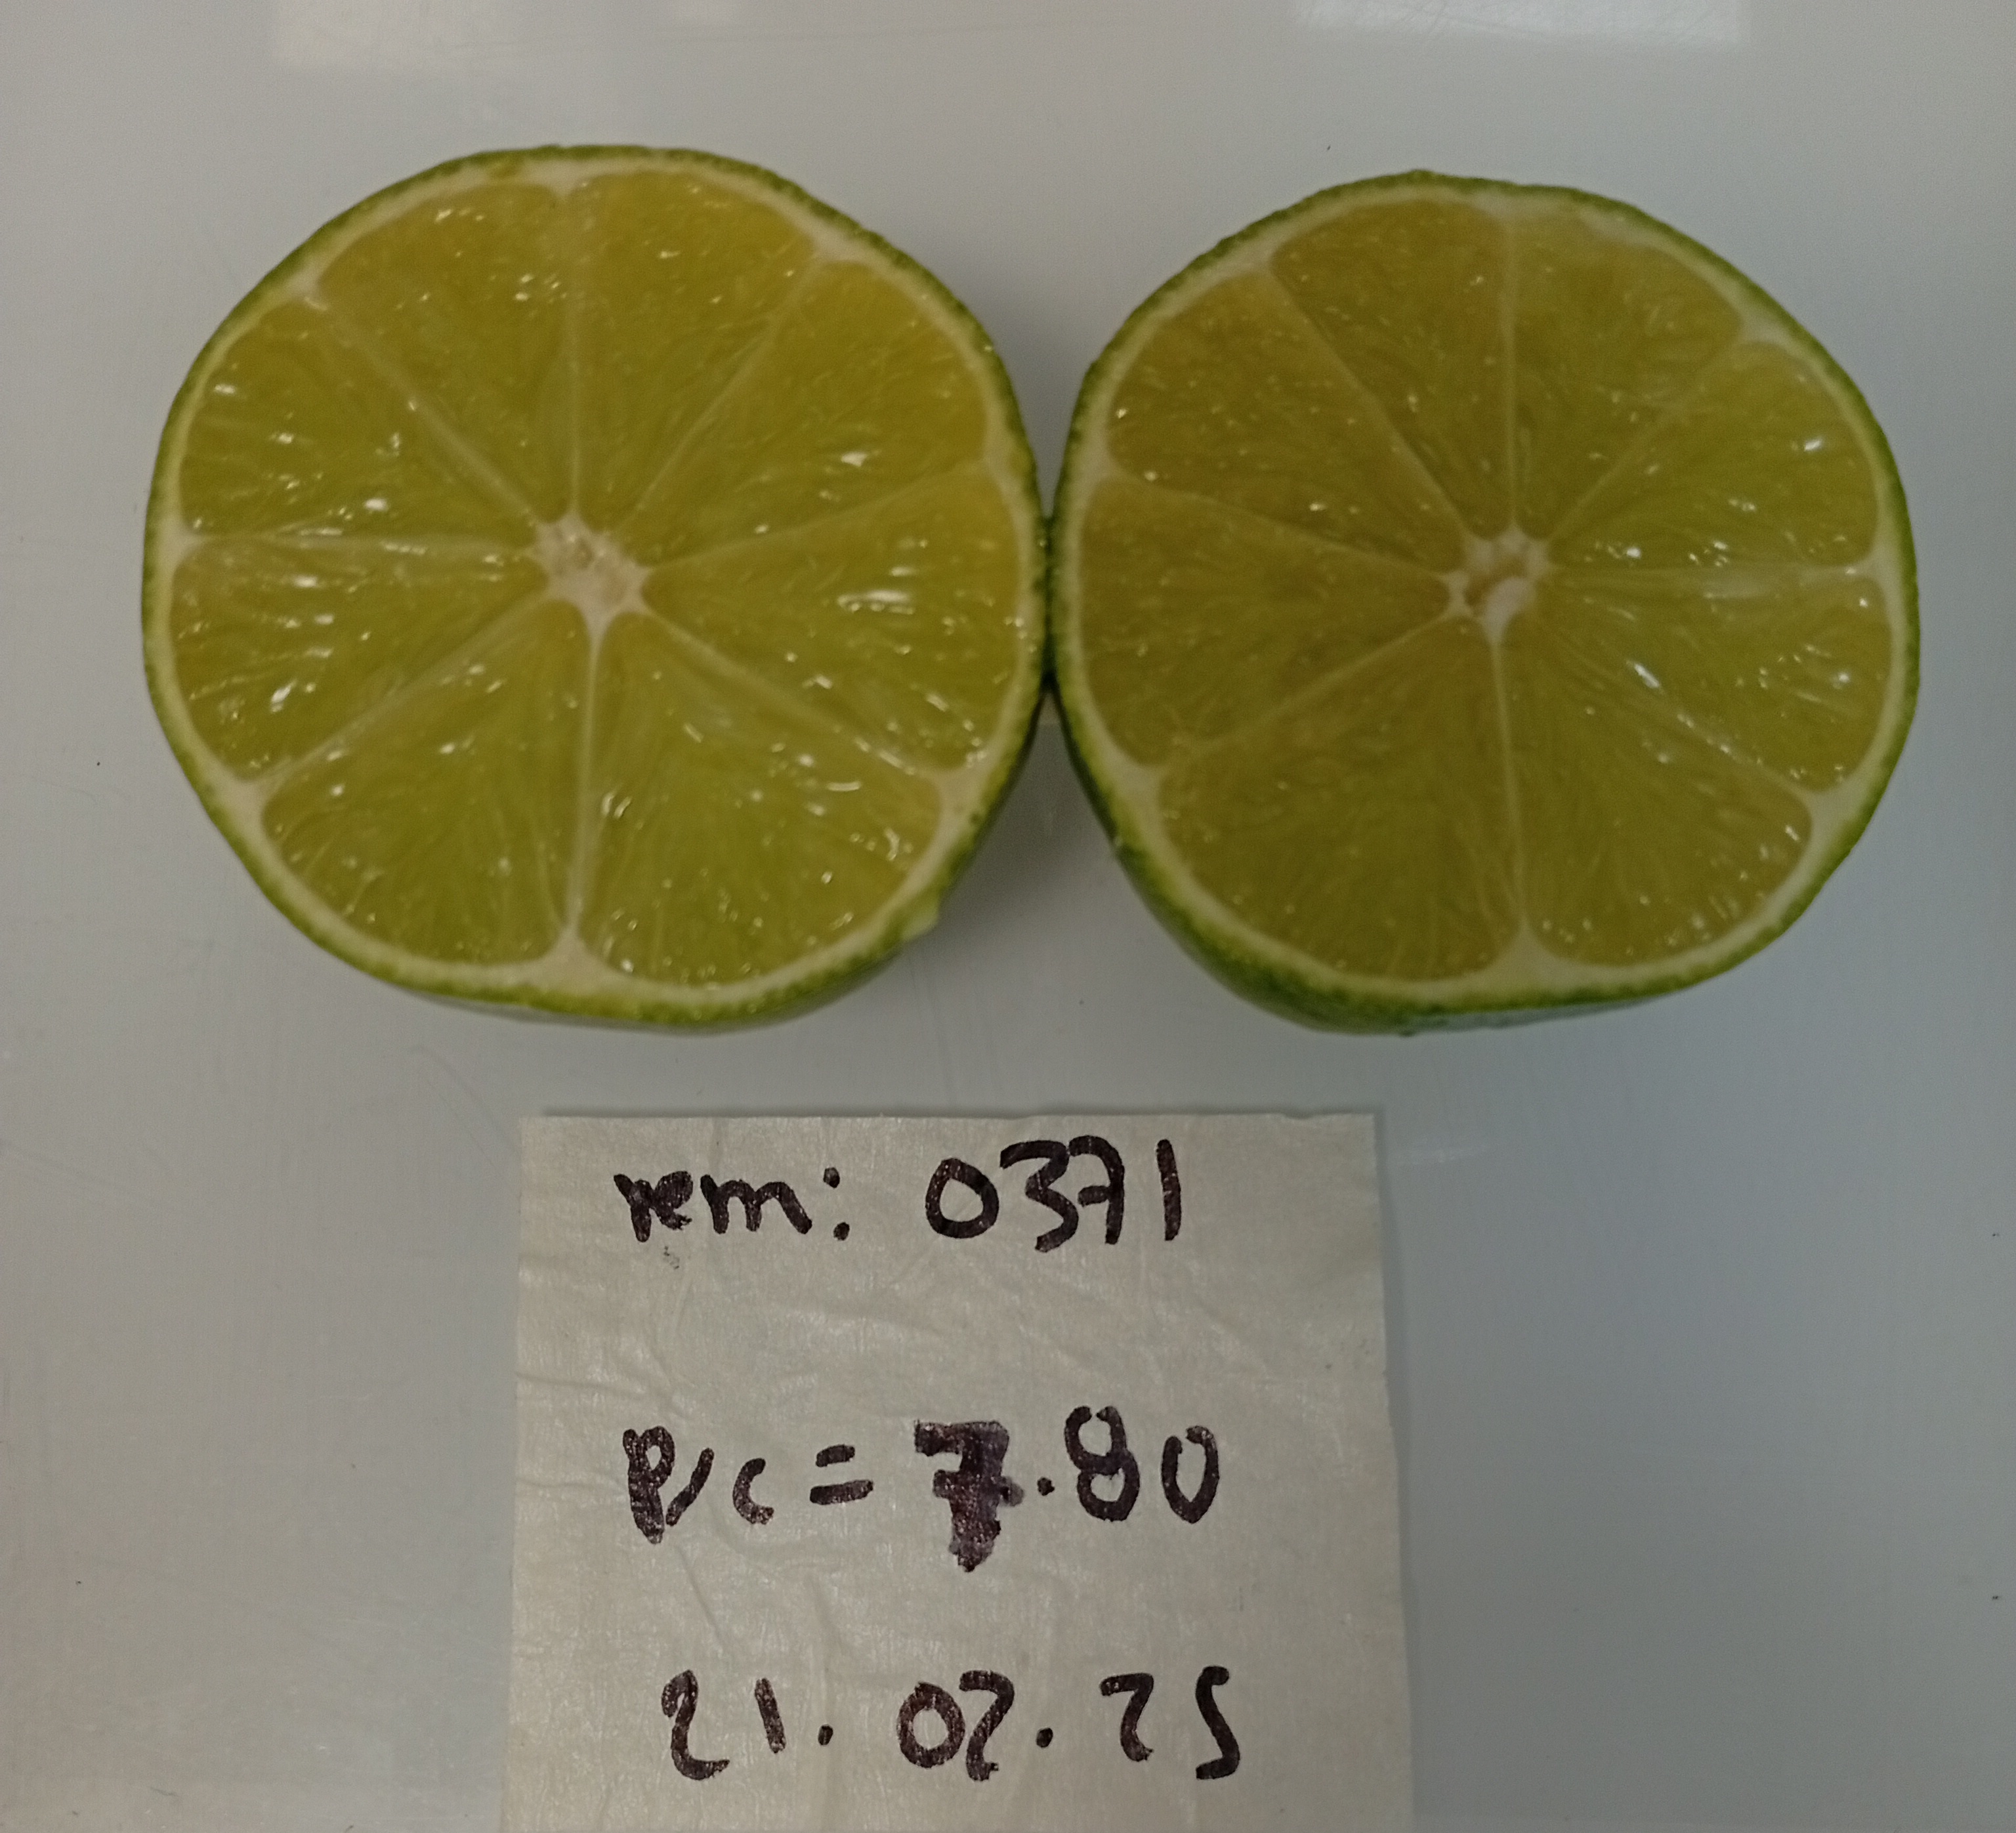 rem: 0371
P/c = 7.80
21.02.25